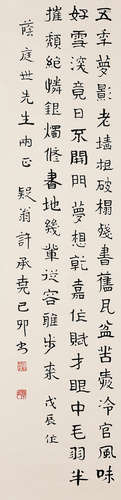 五年夢影老墻根破榻殘書舊瓦盆苦愛冷官風味
好雪深竟日不開門夢想乾嘉佳賦才眼中毛羽半
摧頹絕憐銀燭脩書地幾輩從容雅步來 戊辰作
蔭庭世先生兩正 疑翁許承堯己卯書